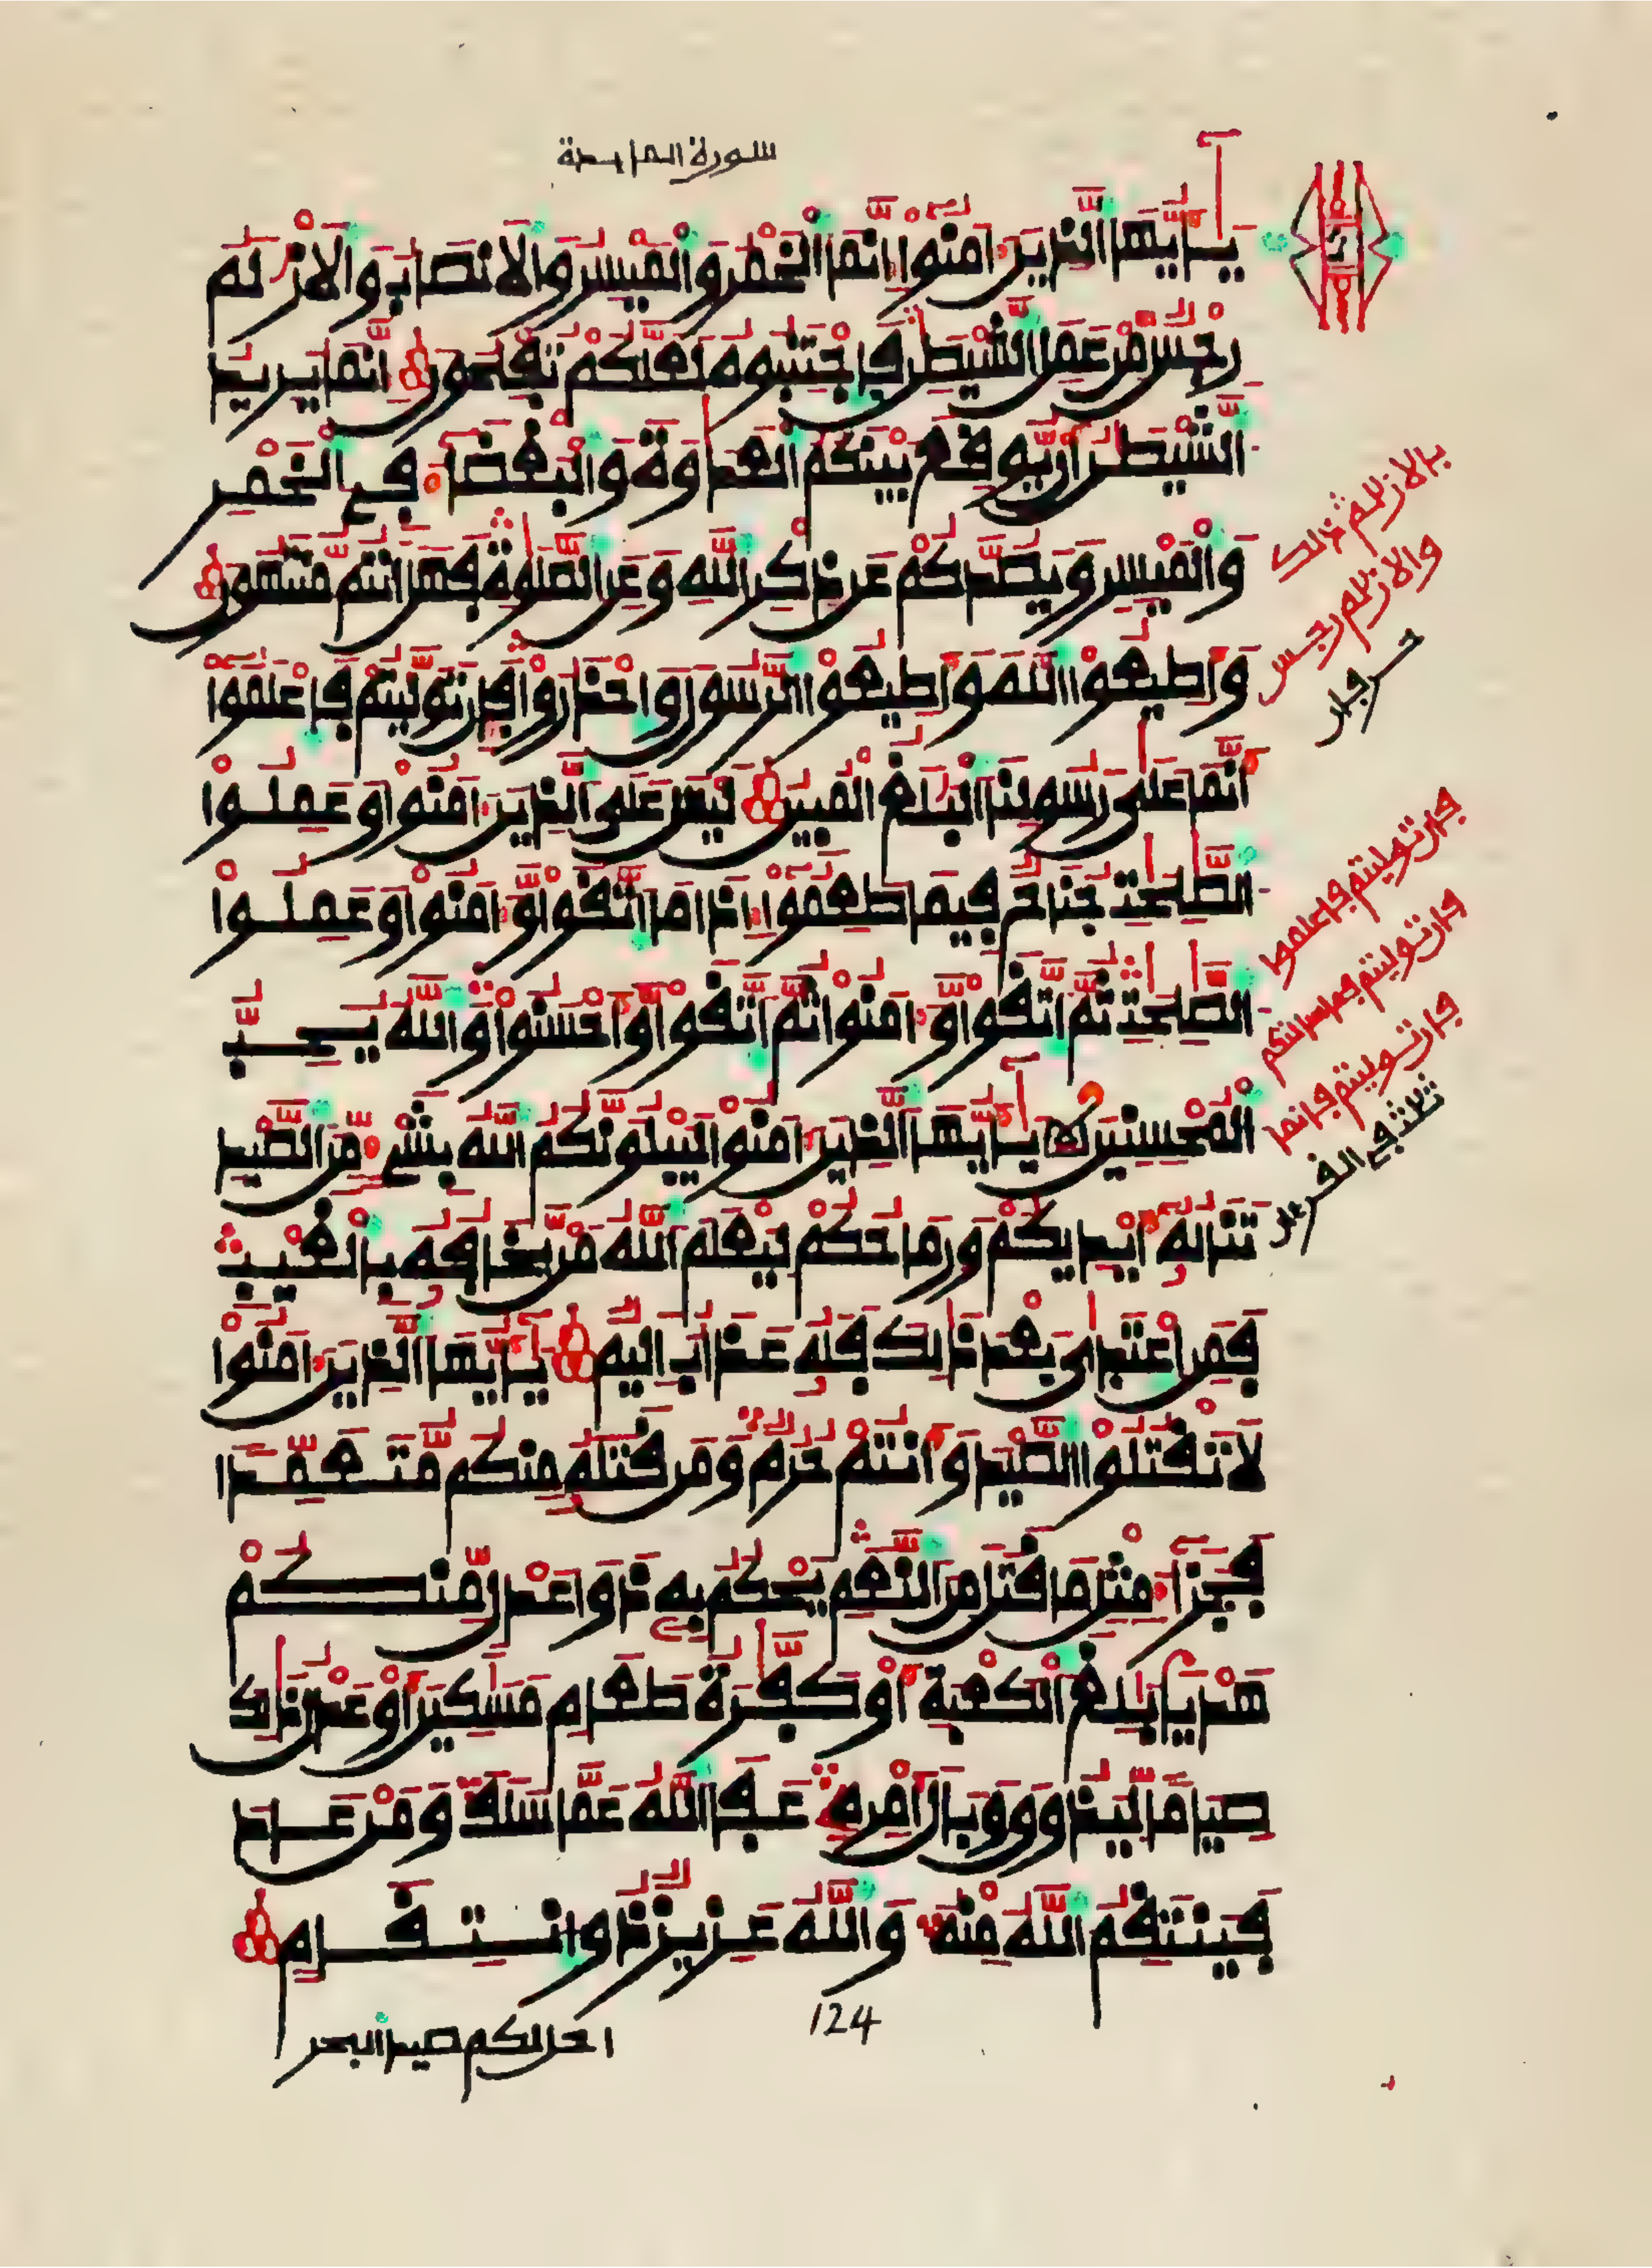 سورة المايدة
يٰٓأيها الذين ءامنوا إنما الخمر والميسر والانصاب والازلٰم
رجس من عمل الشيطٰن فاجتنبوه لعلكم تفلحون إنما يريد
الشيطٰن أن يوقع بينكم العدٰوة والبغضاء في الخمر
والميسر ويصدكم عن ذكر الله وعن الصلوٰة فهل أنتم منتهون
وأطيعوا الله وأطيعوا الرسول واحذروا فإن توليتم فاعلموا
أنما علىٰ رسولنا البلٰغ المبين ليس على الذين ءامنوا وعملوا
الصٰلحٰت جناح فيما طعموا إذا ما اتقوا وءامنوا وعملوا
الصٰلحٰت ثم اتقوا وءامنوا ثم اتقوا وأحسنوا والله يحب
المحسنين يٰٓأيها الذين ءامنوا ليبلونكم الله بشيء من الصيد
تناله أيديكم ورماحكم ليعلم الله من يخافه بالغيب
فمن اعتدىٰ بعد ذٰلك فله عذاب اليم يٰٓأيها الذين ءامنوا
لا تقتلوا الصيد وأنتم حرم ومن قتله منكم متعمدا
فجزاء مثل ما قتل من النعم يحكم به ذوا عدل منكم
هديا بٰلغ الكعبة أو كفٰرة طعام مسٰكين أو عدل ذٰلك
صياما ليذوق وبال أمره عفا الله عما سلف ومن عاد
فينتقم الله منه والله عزيز ذو انتقام
124
احل لكم صيد البحر
بالازلٰم ذلك
والازلٰم رجس
حرفان
فإن توليتم فاعلموا
فإن توليتم فما سالتكم
فإن توليتم فإنما
ثلث في القرءان